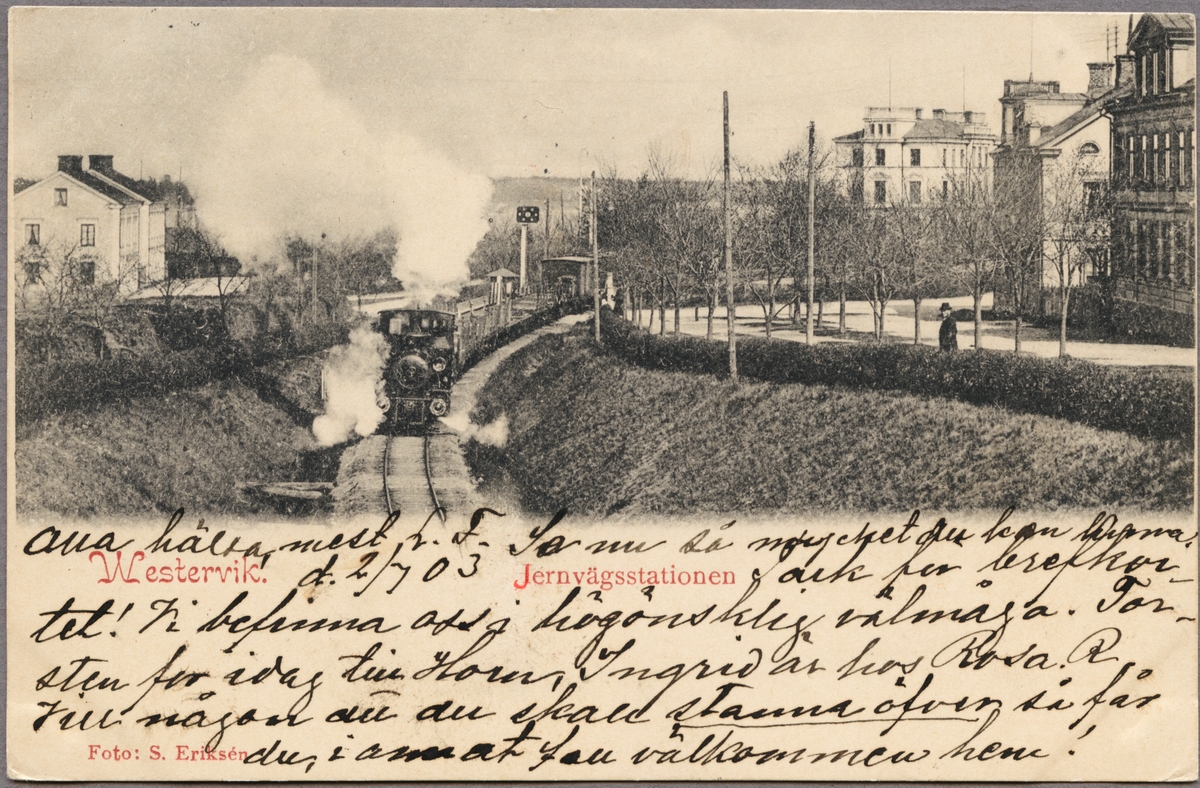 alla hälsa, mest L. F. Se nu så mycket du kan
Westervik.
d. 2/7 03
Jernvägsstationen
Tack for brefkor-
tet! Vi befinna oss i högönsklig välmåga. Tor-
sten for idag till Horn, Ingrid är hos Rosa. R.
Vill någon att du skall stanna öfver så får
Foto: S. Eriksén
du, i annat fall välkommen hem!